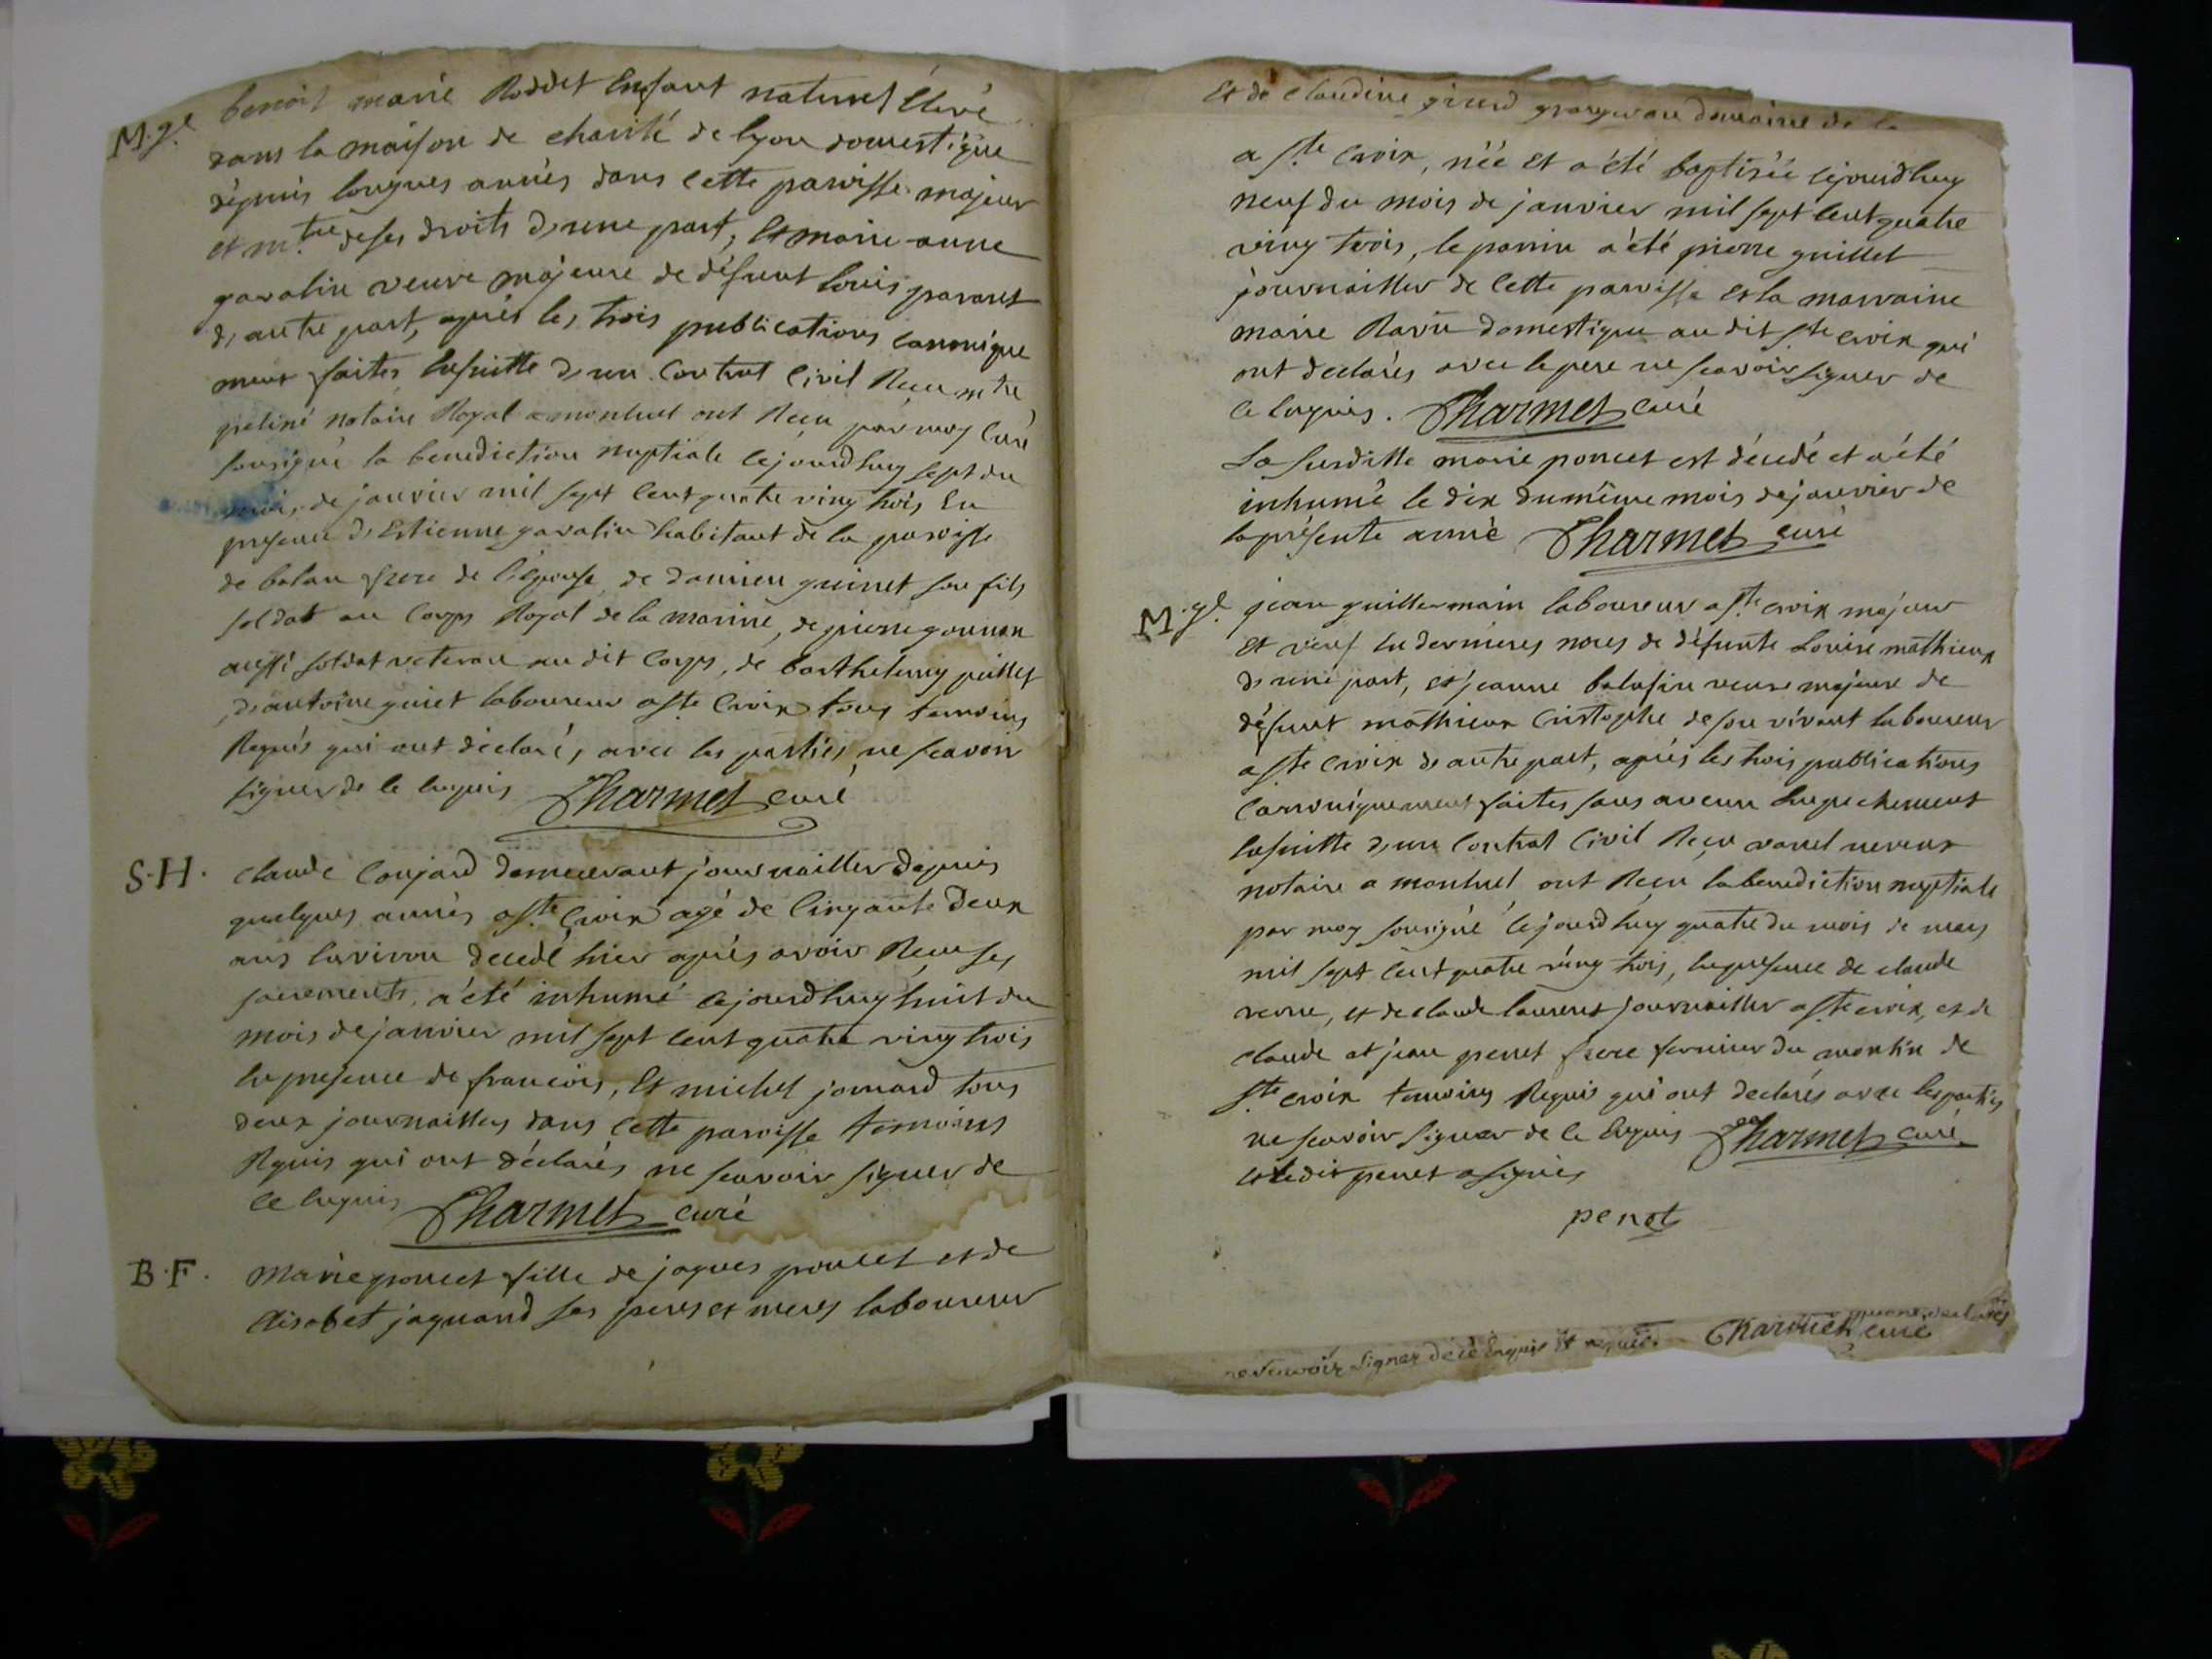 M.ge benoit marie Roddet Enfant naturel Elevé
dans la maison de charité de lyon domestique
dépuis longues années dans cette paroisse majeur
et m.tre de ses droits d'une part, Et marie anne
gavalin veuve majeure de défunt louis
d'autre part, après les trois publications canonique
ment faites Ensuitte d'un Contrat Civil Reçu m.tre
notaire Royal a montluel ont Recu par moy Curé
sousigné la benediction nuptiale cejourd'huy sept du
mois de janvier mil sept cent quatre ving trois En
presence d'Estienne gavalin habitant de la paroisse
de balan frere de l'épouse, de damien guinet son fils
soldat au Corps Royal de la marine, de pierre
aussi soldat veteran au dit Corps, de barthelemy
d'antoine guiet laboureur a ste Croix tous temoins
Requis qui ont déclarés avec les parties ne scavoir
signer de ce Enquis Charmet curé
S.H. claude Conjard demeurant journaillier depuis
quelques années a ste Croix agé de Cinqante deux
ans Environ decedé hier après avoir Recu ses
sacrements, a été inhumé cejourd'huy huit du
mois de janvier mil sept cent quatre ving trois
En presence de francois, Et michel jomard tous
deux journailliers dans cette paroisse temoins
Requis qui ont déclarés ne scavoir signer de
ce Enquis Charmet curé
B.F. Marie poncet fille de jaques poncet et de
Elisabet jaquand ses peres et meres laboureur
Et de Claudine girard granger au domaine de la
a ste Croix, née Et a été baptisée cejourd'huy
neuf du mois de janvier mil sept cent quatre
ving trois, le parrin a été pierre guillet
journaillier de cette paroisse Et la marraine
marie Ravie domestique au dit ste Croix qui
ont declarés avec le pere ne scavoir signer de
ce Enquis. Charmet curé
La susditte marie poncet est décédé et a été
inhumé le dix du même mois de janvier de
la présente année Charmet curé
M.ge jean guillermain laboureur a ste Croix majeur
et veuf En dernieres noces de défunte Louise mathieux
d'une part, et jeanne balufin veuve majeure de
défunt mathieux Cristophe de son vivant laboureur
a ste Croix d'autre part, après les trois publications
Canoniquement faites sans aucun Empechement
Ensuitte d'un Contrat Civil Reçu
notaire a montluel ont Recu la benediction nuptiale
par moy sousigné cejourd'huy quatre du mois de mars
mil sept cent quatre ving trois, En presence de claude
et de claude laurent journaillier a ste croix, et de
claude et jean penet frere fermier du de
ste croix temoins Requis qui ont declarés avec les parties
ne scavoir signer de ce Enquis Charmet curé
et le dit penet a signés
penet
qui ont declarés
ne scavoir signer de ce Enquis Et requis. Charmet curé